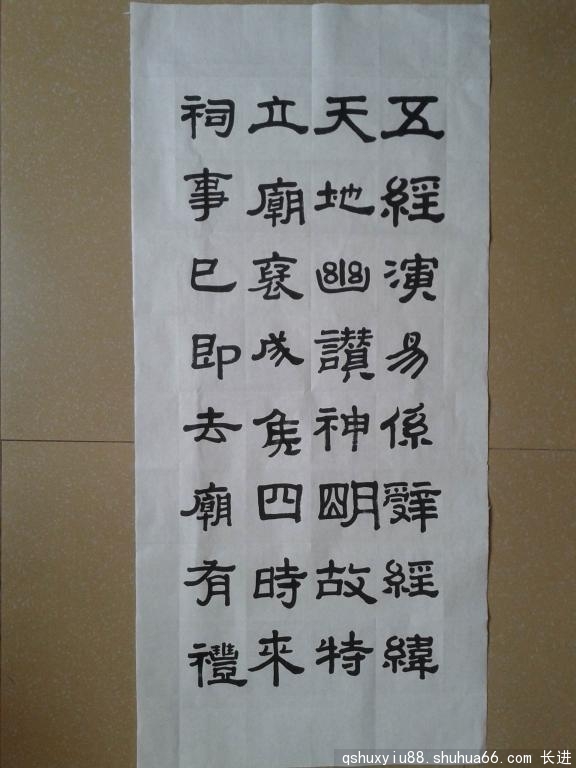 五經演易係辭經緯
天地幽讃神明故特
立廟褒成侯四時來
祠事已即去廟有禮
qshuxyiu88.shuhua66.com 长进